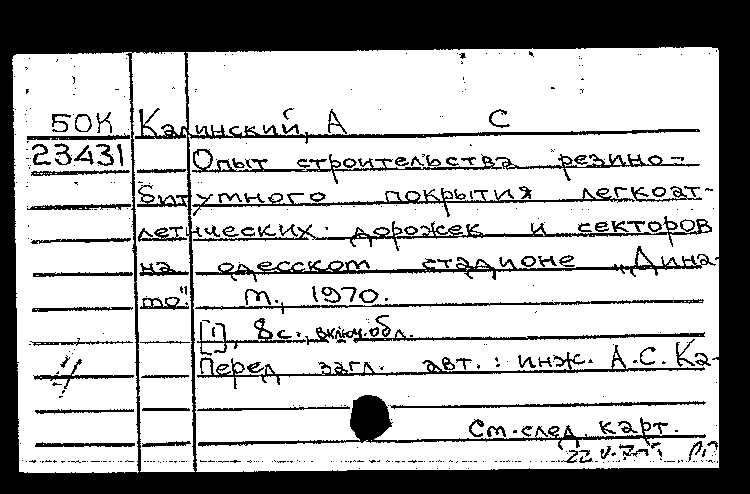 БОК Калинский, А С
23431 Опыт строительства резино-
битумного покрытия легкоат-
летических дорожек и секторов
на одесском стадионе „Дина-
мо". М., 1970.
[1], 8с., включ. обл.
Перед загл. авт.: инж. А.С. Ка-
4
См. след. карт.